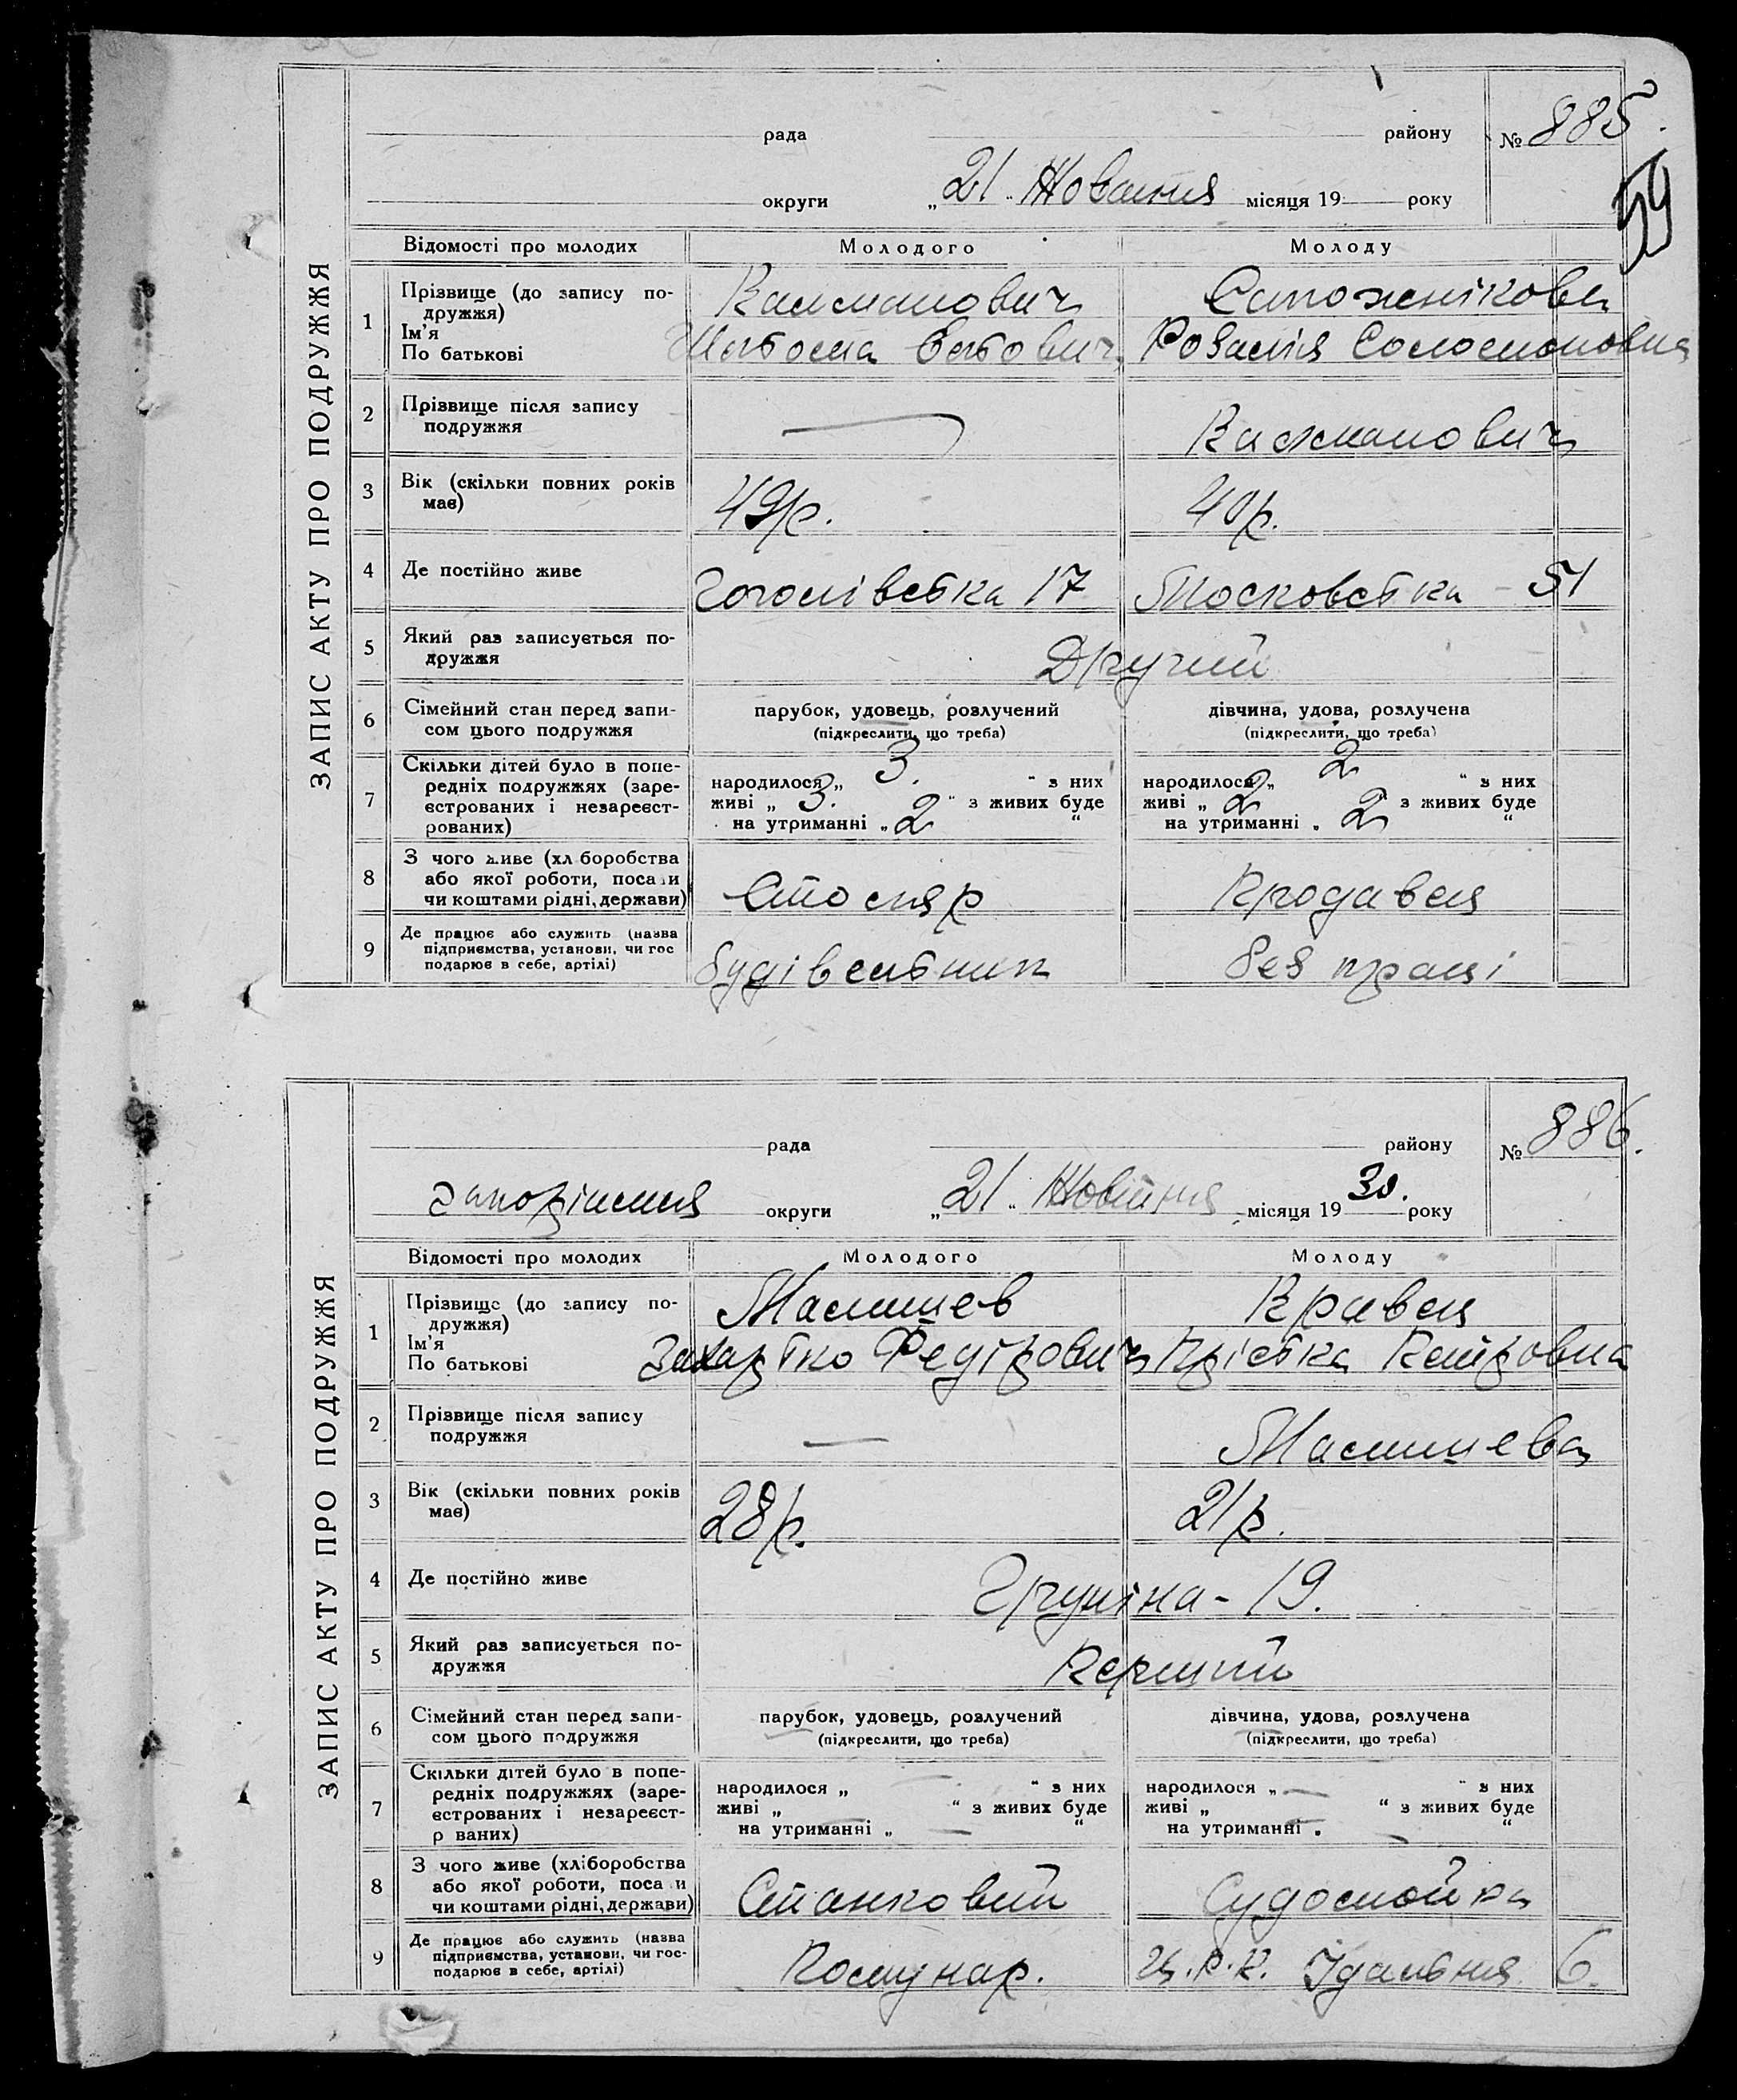 рада району № 885.
59
округи „21" Жовтня місяця 19 року
ЗАПИС АКТУ ПРО ПОДРУЖЖЯ
Відомості про молодих Молодого Молоду
1 Прізвище (до запису по-
дружжя)
Ім'я
По батькові
Калманович Сапожнікова
Розалія Соломоновна
2 Прізвище після запису
подружжя
— Калманович
3 Вік (скільки повних років
має)
49 р. 40 р.
4 Де постійно живе
Гоголівська 17 Московська - 51
5 Який раз записується по-
дружжя
Другий
6 Сімейний стан перед запи-
сом цього подружжя
парубок, удовець, розлучений дівчина, удова, розлучена
(підкреслити, що треба) (підкреслити, що треба)
7 Скільки дітей було в попе-
редніх подружжях (заре-
єстрованих і незареєст-
рованих)
народилося „ 3. " з них народилося „ 2 " з них
живі „ 3. " з живих буде живі „ 2 " з живих буде
на утриманні „ 2 " на утриманні „ 2 "
8 З чого живе (хл боробства
або якої роботи, поса и
чи коштами рідні, держави)
Столяр Продавец
9 Де працює або служить (назва
підприємства, установи, чи гос
подарює в себе, артілі)
будівельник без праці
рада району № 886.
Запоріжжя округи „21" Жовтня місяця 1930. року
ЗАПИС АКТУ ПРО ПОДРУЖЖЯ
Відомості про молодих Молодого Молоду
1 Прізвище (до запису по-
дружжя)
Ім'я
По батькові
Малишев Кравец
Захарко Федірович Прістка Петровна
2 Прізвище після запису
подружжя
— Малишева
3 Вік (скільки повних років
має)
28 р. 21 р.
4 Де постійно живе
19.
5 Який раз записується по-
дружжя
Перший
6 Сімейний стан перед запи-
сом цього подружжя
парубок, удовець, розлучений дівчина, удова, розлучена
(підкреслити, що треба) (підкреслити, що треба)
7 Скільки дітей було в попе-
редніх подружжях (заре-
єстрованих і незареєст-
р ваних)
народилося „ — " з них народилося „ — " з них
живі „ — " з живих буде живі „ — " з живих буде
на утриманні „ — " на утриманні „ — "
8 З чого живе (хліборобства
або якої роботи, поса и
чи коштами рідні, держави)
Станковий Судомойка
9 Де працює або служить (назва
підприємства, установи, чи гос-
подарює в себе, артілі)
Комунар. Ц.Р.К. Їдальня 6.